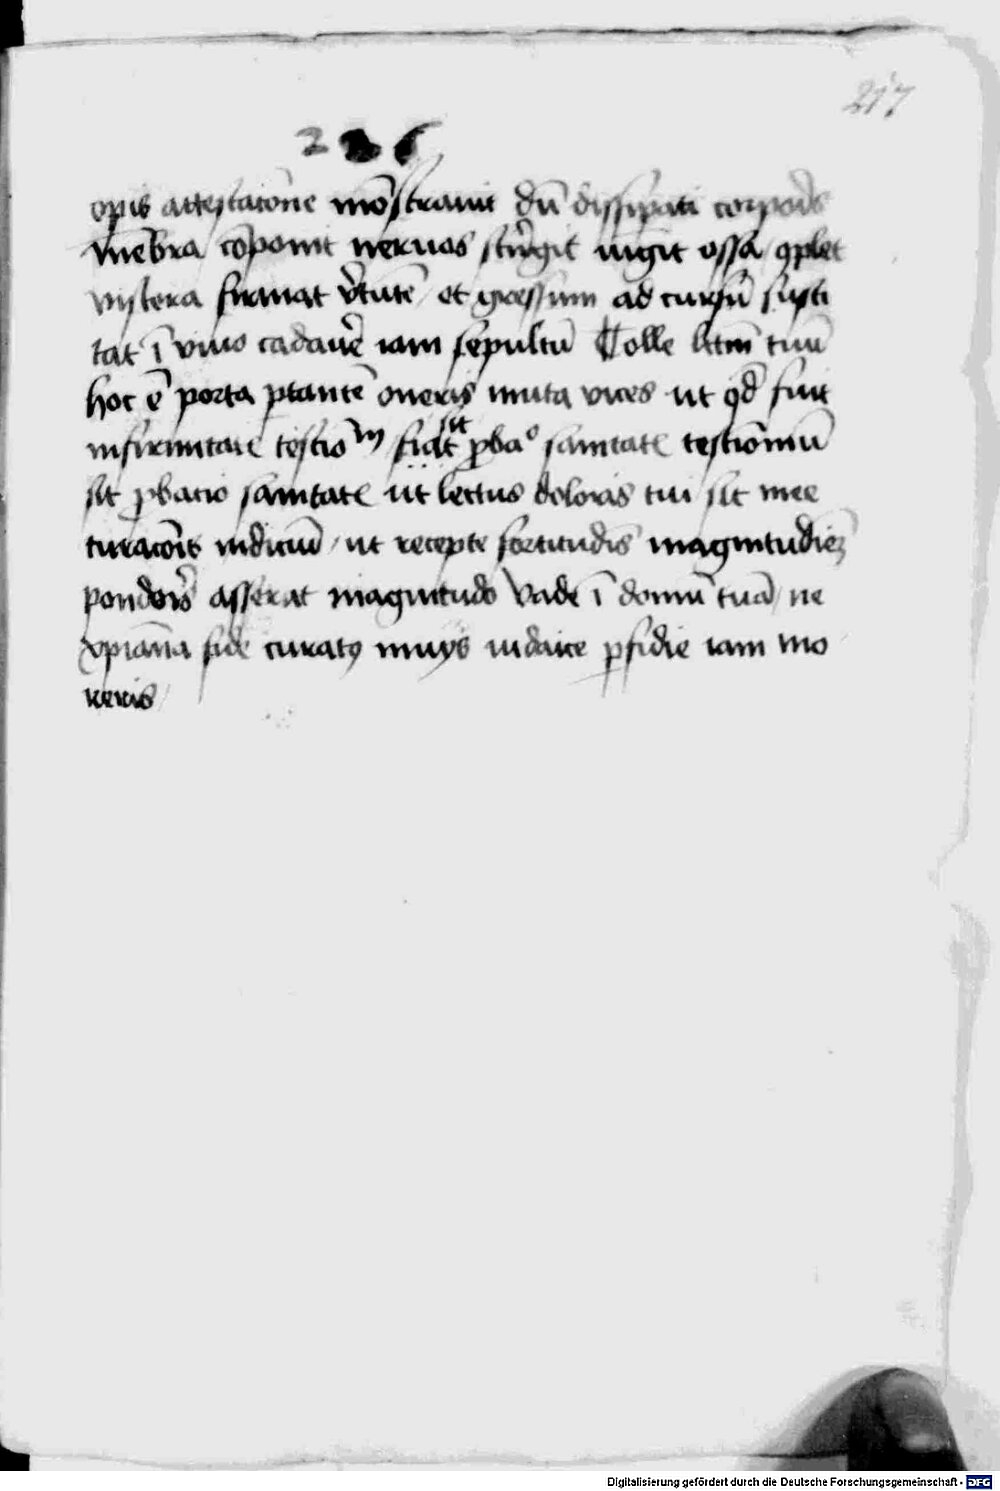 217
226
opis attestatōne mōstrauit dū dissipati corporis
mēbra cōponit neruos strīgit iūgit ossa / 9plet
viscera firmat v̓tutē / et gressum ad cursū susci
tat ī viuo cadaūe iam sepultū ¶ Tolle lectm̄ tuū
hoc ē porta portantē oneris muta vices ut qd̄ fuit
infirmitatē testiom fiat sit ꝓbao sanitatē testiōniū
sit ꝓbatio sanitatē ut lectus doloris tui sit mee
curacōis indiciū / ut recepte fortitudīs magnitudiēʒ
ponderis asserat magnitudo Vade ī domū tuā / ne
xp̄iana fide curatꝰ inuijs iudaice ꝑfidie iam mo
reris /
Digitalisierung gefördert durch die Deutsche Forschungsgemeinschaft - DFG